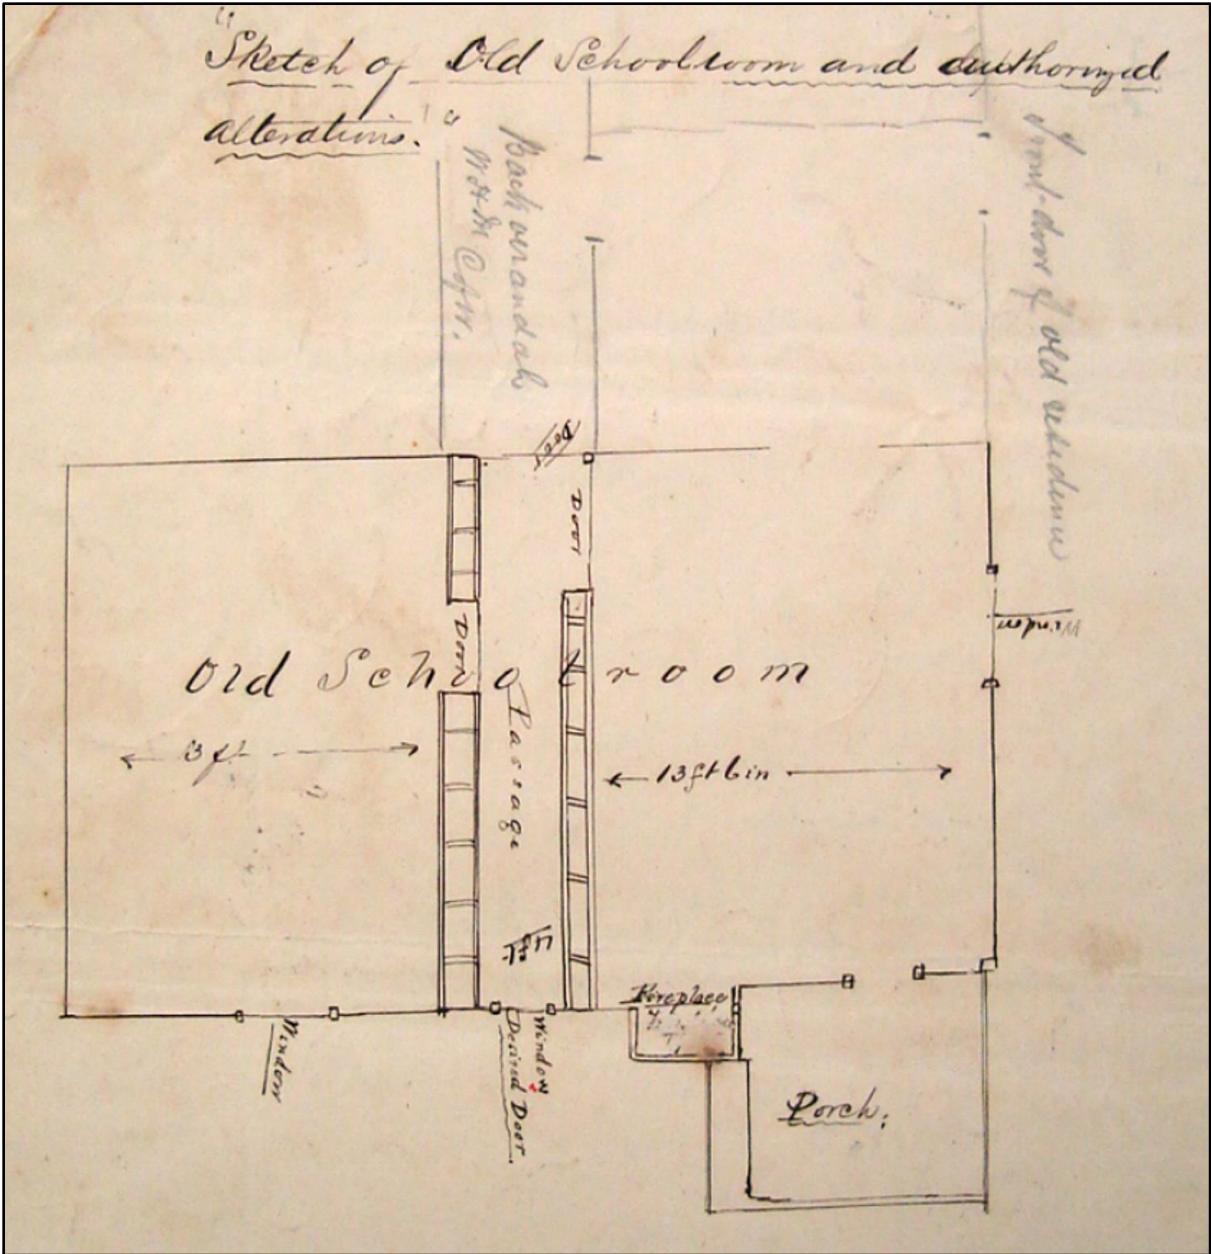 "Sketch of Old Schoolroom and authorized
alterations."
Back verandah
Front-door of old residence
Door
Door
Door
Window
Old Schoolroom
Passage
3 ft
13 ft 6 in
4 ft
Fireplace
Window
Window
Desired Door.
Porch.